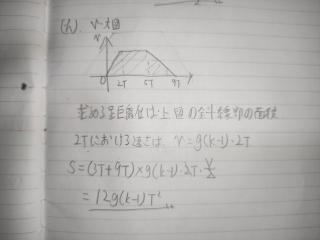 (h). v-t図
v
0 2T 5T 9T
求める距離は上図の斜線部の面積
2Tにおける速さは v=g(k-1)・2T
S=(3T+9T)×g(k-1)・2T・1/2
=12g(k-1)T²